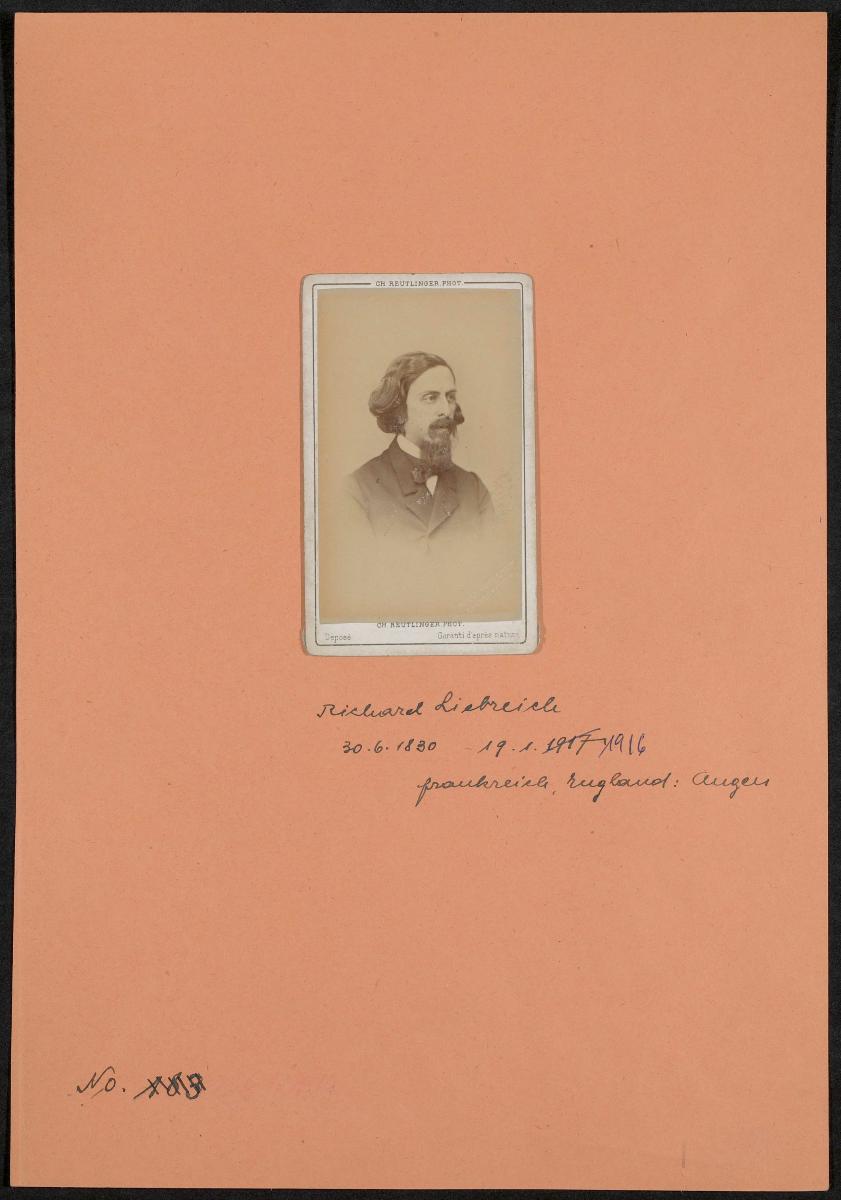 CH REUTLINGER PHOT.
CH REUTLINGER PHOT.
Déposé Garanti d'après nature
Richard Liebreich
30.6.1830 - 19.1.1917 1916
Frankreich, England: Augen
No.